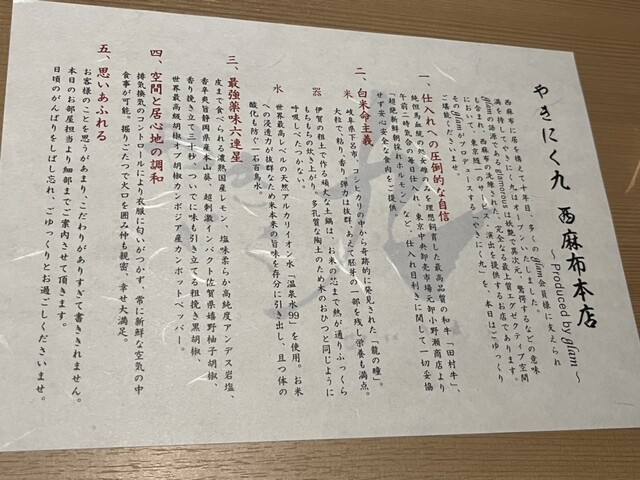 やきにく九 西麻布本店
～Produced by glam～
西麻布に居を構えて十年目、多くのglam会員様に支えられ
満を持して「やきにく九」はオープンいたしました。
glamの語源であるglamorousは妖艶で異次元、驚愕するなどの意味
も含まれ、西麻布の洗練された、完全なる最上質エグゼクティブ空間
において、東京随一のサービス・演出を提供するお店であります。
そのglamがプロデュースする「やきにく九」を、本日はごゆっくり
ご堪能くださいませ。
一、仕入れへの圧倒的な自信
純但馬血統の処女雌のみを理想飼育した最高品質の和牛「田村牛」、
午前二時気合の毎日仕入れ、東京中央卸売市場元卸小野瀬商店より
「超絶！新鮮朝採れホルモン」など、仕入れ目利きに関して一切妥協
せず安心安全な食肉をご提供
二、白米命主義
米 岐阜県下呂市、コシヒカリの中から奇跡的に発見された「龍の瞳」。
大粒で、粘り、香り、弾力は抜群、あえて胚芽の一部を残し栄養も満点。
器 伊賀の粗土で作る頑丈な土鍋は、お米の芯まで熱が通りふっくら
もちもちの炊き上がり。多孔質な陶土のため木のおひつと同じように
呼吸しべたつかない。
水 世界最高レベルの天然アルカリイオン水「温泉水99」を使用。お米
への浸透力が抜群なため米本来の旨味を存分に引き出し、且つ体の
酸化も防ぐ一石百鳥水。
三、最強薬味六連星
皮まで食べられる濃熟国産レモン、塩味柔らか高純度アンデス岩塩、
香辛爽旨静岡県産本山葵、超刺激インパクト佐賀県嬉野柚子胡椒、
香り挽き立て三十秒、ついでに味も引き立てる粗挽き黒胡椒、
世界最高級胡椒オブ胡椒カンボジア産カンポットペッパー。
四、空間と居心地の調和
排気換気のコントロールにより衣服に匂いがつかず、常に新鮮な空気の中
食事が可能。掘りごたつで火口を囲み仲も親密、幸せ大満足。
五、思いあふれる
お客様のことを思うがあまり、こだわりがありすぎて書ききれません。
本日のお部屋担当より細部までご案内させて頂きます。
日頃のがんばりをしばし忘れ、ごゆっくりとお過ごしくださいませ。